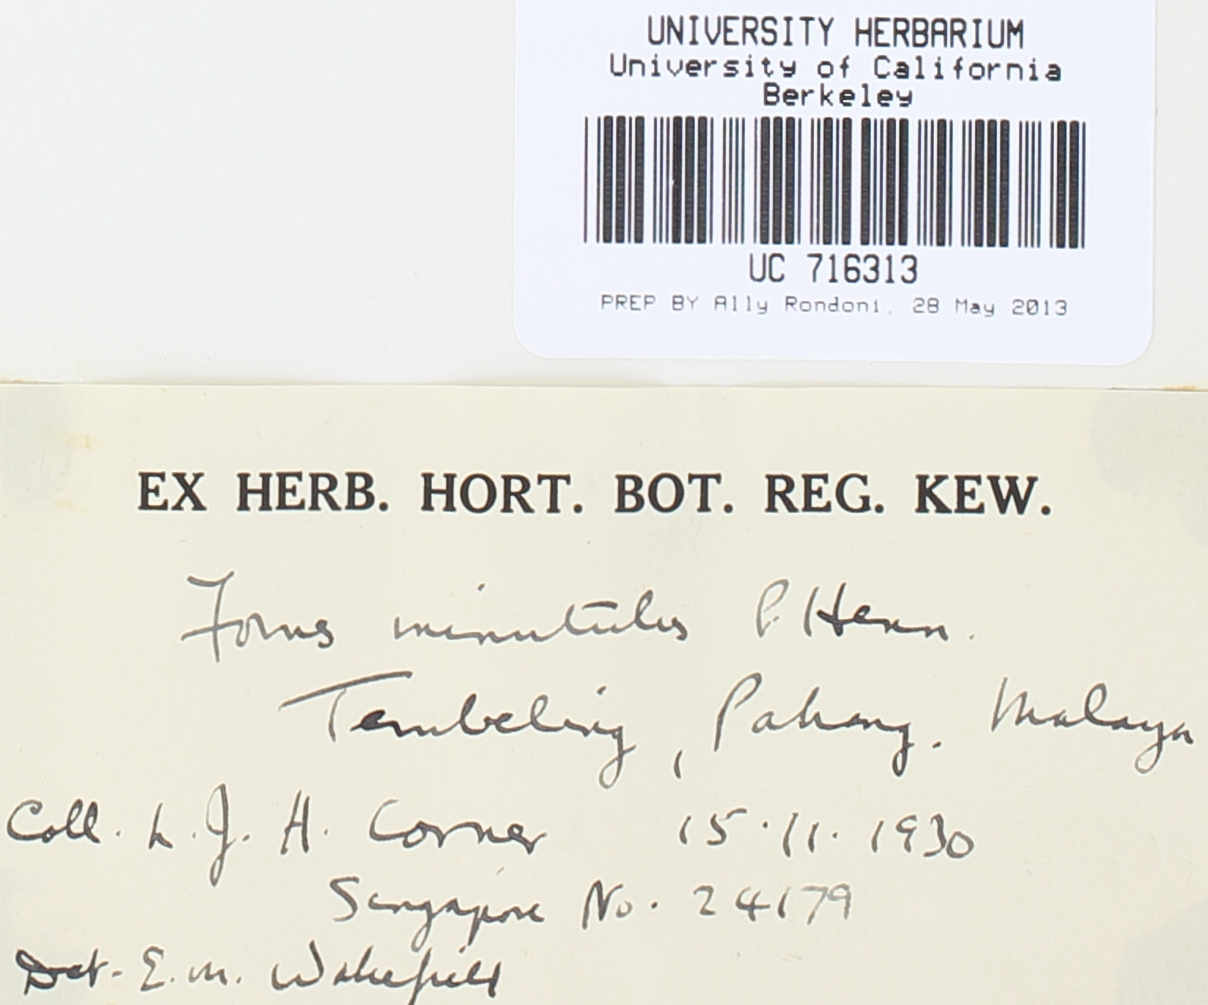 UNIVERSITY HERBARIUM
University of California
Berkeley
UC 716313
PREP BY Ally Rondoni, 28 May 2013
EX HERB. HORT. BOT. REG. KEW.
Fomes minutulus P. Henn.
Tembeling, Pahang. Malaya
Coll. L. J. H. Corner 15.11.1930
Singapore No. 24179
Det. E. M. Wakefield